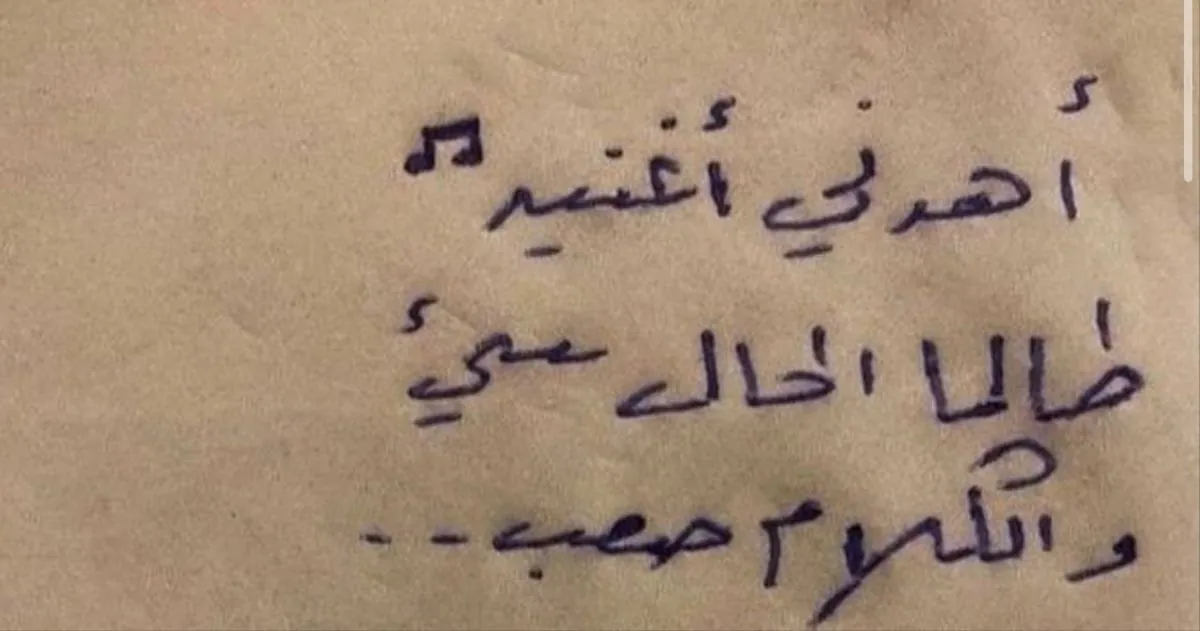 أهدني أغنيه ♫
طالما الحال سيئ
والكلام صعب --